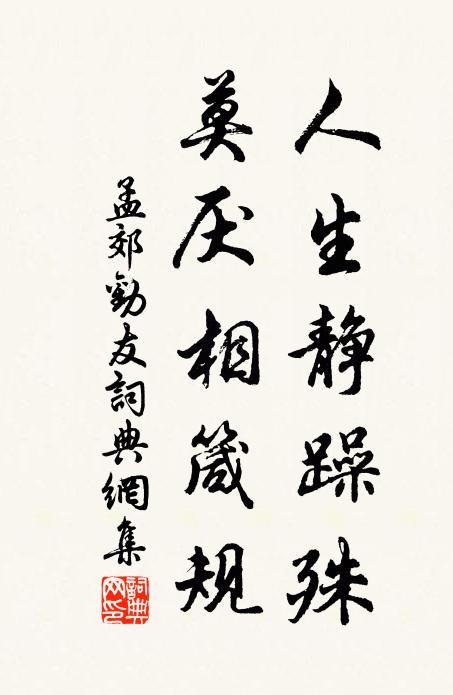 人生静躁殊
莫厌相箴規
孟郊勸友詞典網集
詞典網印